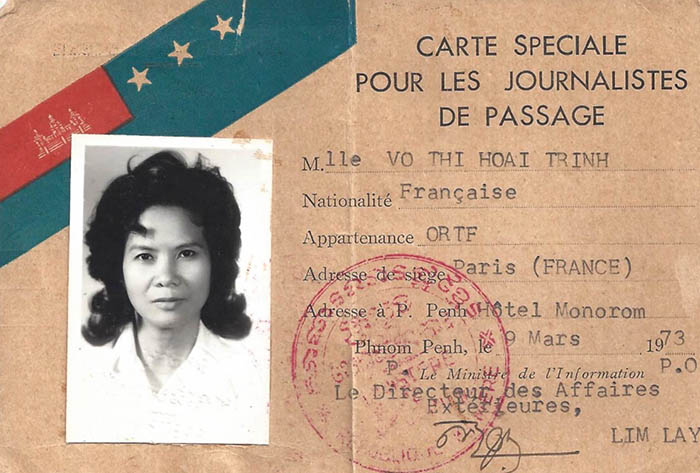 CARTE SPECIALE
POUR LES JOURNALISTES
DE PASSAGE
M.lle VO THI HOAI TRINH
Nationalité Française
Appartenance ORTF
Adresse de siège Paris (FRANCE)
Adresse à P. Penh Hôtel Monorom
Phnom Penh, le 9 Mars 1973
P. Le Ministre de l'Information P.O
Le Directeur des Affaires
Extérieures,
LIM LAY